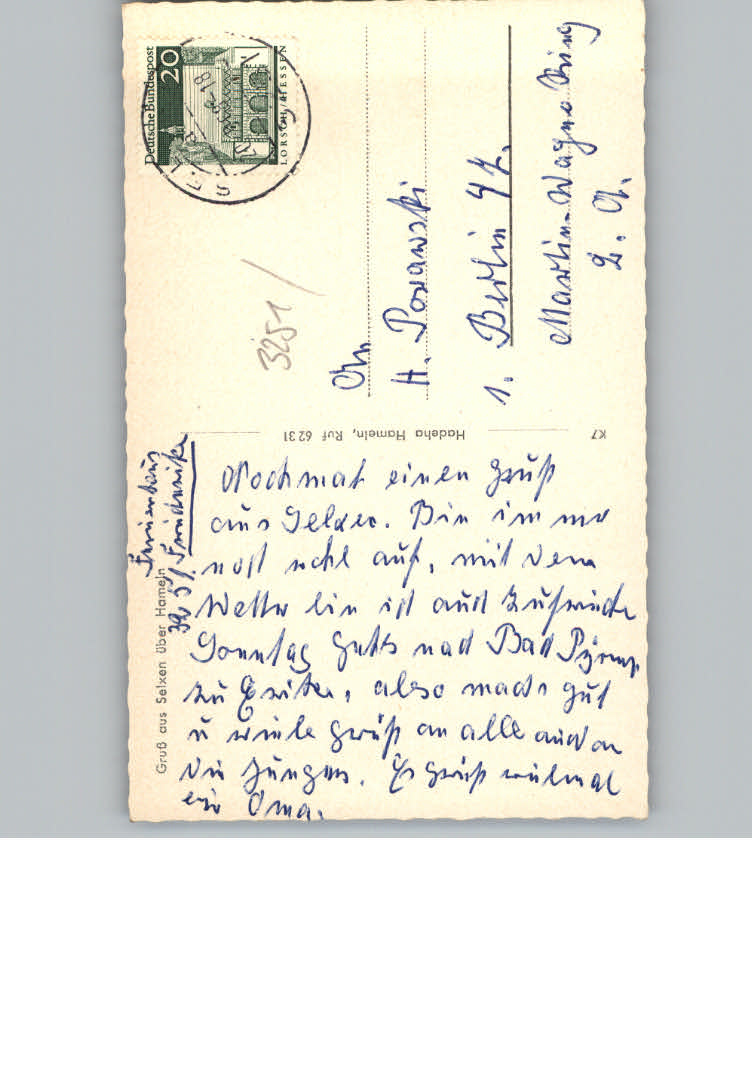 Deutsche Bundespost
20
LORSCH/HESSEN
3251
An
H. Posawski
1. Berlin 47.
Martin-Wagner-Ring
2. A.
K7
Hadeha Hameln, Ruf 6231
Gruß aus Selxen über Hameln
Ferienhaus
3251 Friederike
Nochmal einen Gruß
aus Selxen. Bin immer
noch nicht auf, mit dem
Wetter bin ich auch zufrieden
Sonntag gehts nach Bad Pyrm.
zu also machs gut
u viele Grüße an alle auch an
die Jungens. Es grüßt vielmal
die Oma.